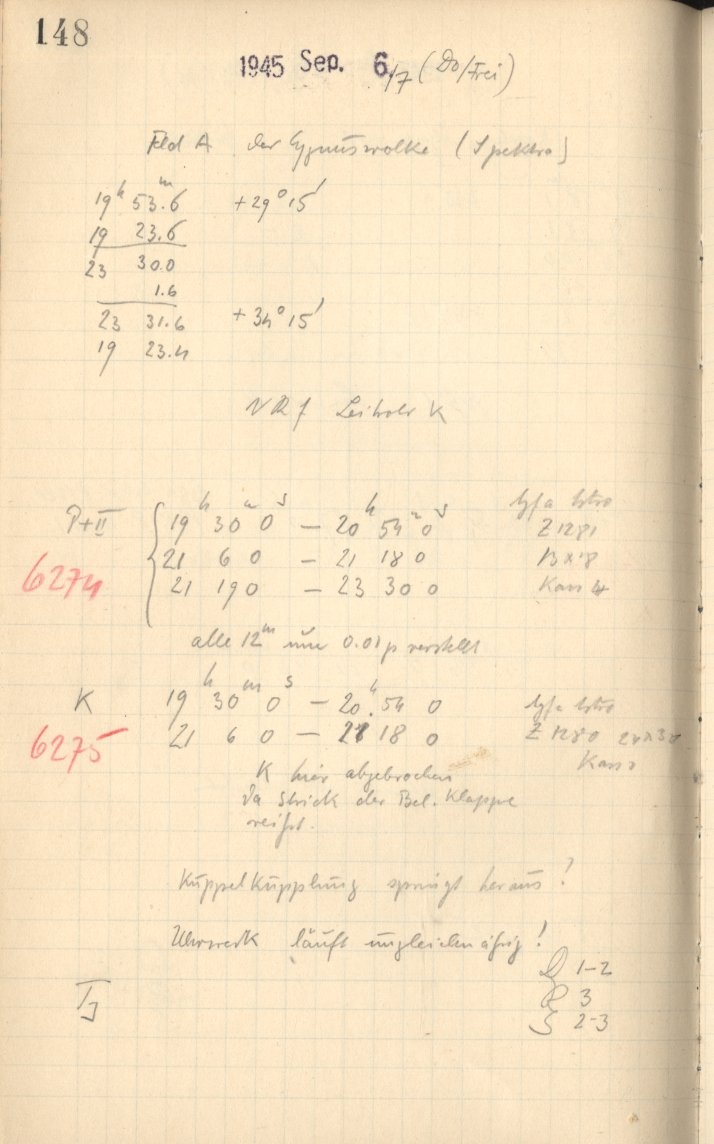 148
1945 Sep. 6/7 (Do/Frei)
Feld A der Cygnuswolke (Spektro)
19h 53m.6 +29° 15'
19 23.6
23 30.0
1.6
23 31.6 +34° 15'
19 23.4
Leitrohr K
P+II 19h 30m 0s — 20h 54m 0s Agfa Astro
Z 1281
21 6 0 — 21 18 0
6274
21 19 0 — 23 30 0 Kass 4
alle 12m um 0.01 p verstellt
K 19h 30m 0s — 20h 54 0 Agfa Astro
6275
21 6 0 — 21 18 0 Z 1280 24x30
Kass
K hier abgebrochen
da Strick der Bel. Klappe
reißt.
Kuppelkupplung springt heraus!
Uhrwerk läuft ungleichmäßig!
D 1-2
R 3
S 2-3